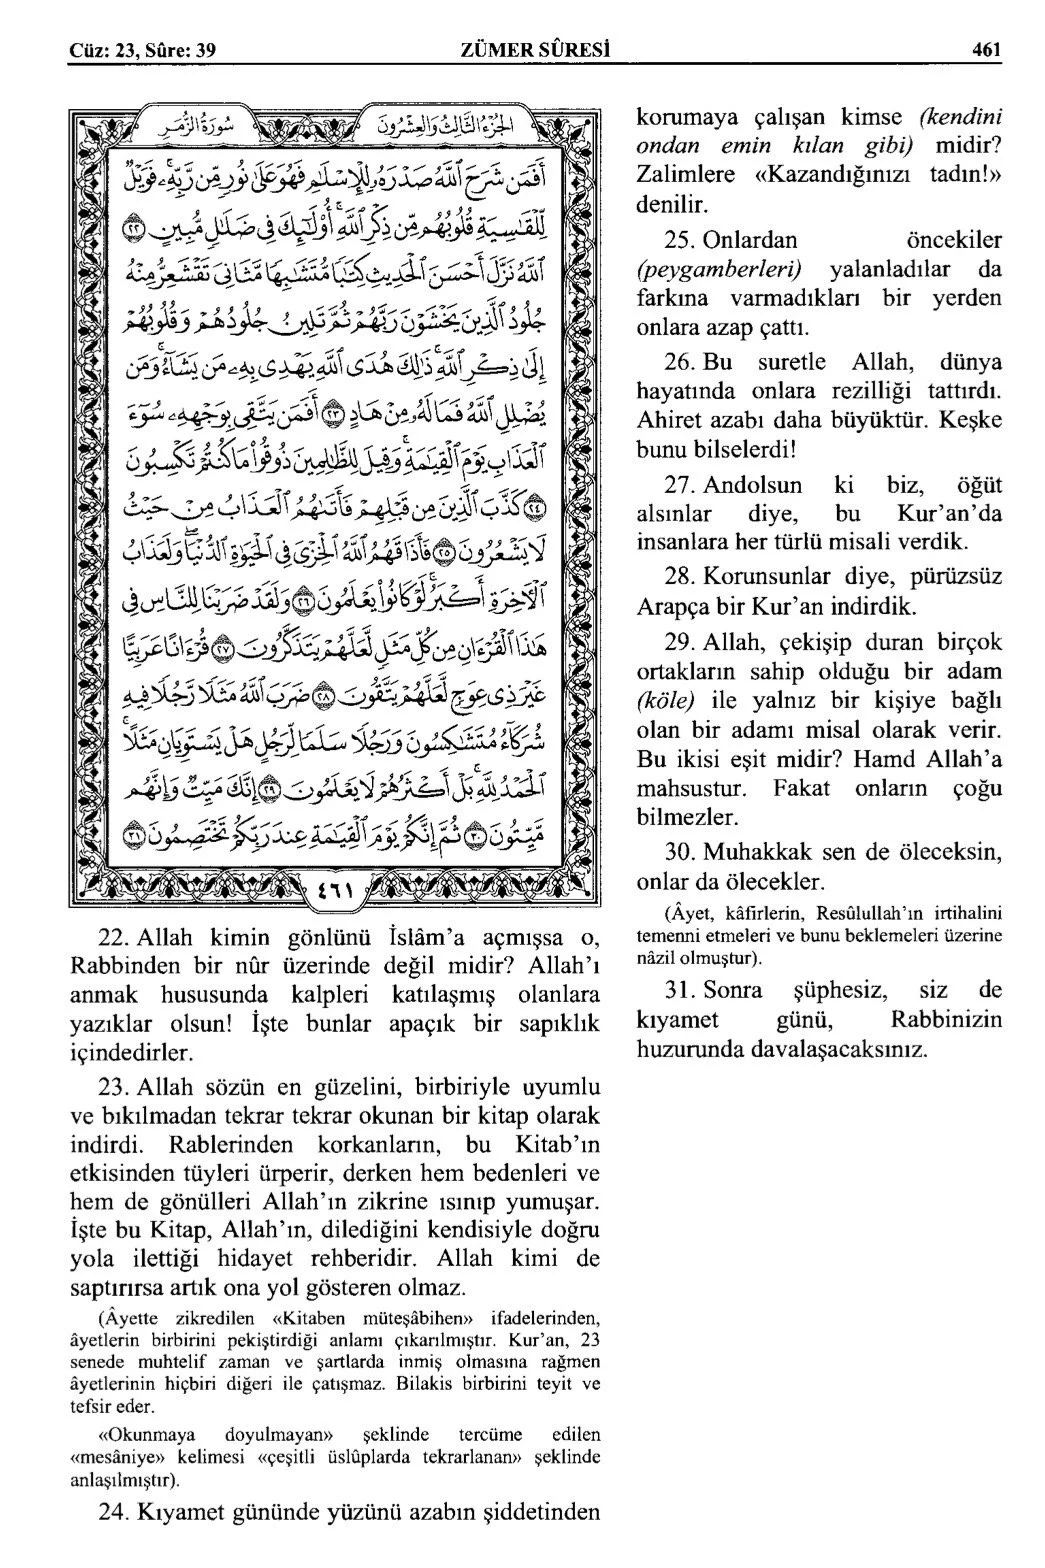 Cüz: 23, Sûre: 39 ZÜMER SÛRESİ 461
سُورَةُ الزُّمَرِ الجُزْءُ الثَّالِثُ وَالعِشْرُونَ
أَفَمَن شَرَحَ ٱللَّهُ صَدْرَهُۥ لِلْإِسْلَٰمِ فَهُوَ عَلَىٰ نُورٍ مِّن رَّبِّهِۦۚ فَوَيْلٌ
لِّلْقَٰسِيَةِ قُلُوبُهُم مِّن ذِكْرِ ٱللَّهِۚ أُو۟لَٰٓئِكَ فِى ضَلَٰلٍ مُّبِينٍ ٢٢
ٱللَّهُ نَزَّلَ أَحْسَنَ ٱلْحَدِيثِ كِتَٰبًا مُّتَشَٰبِهًا مَّثَانِىَ تَقْشَعِرُّ مِنْهُ
جُلُودُ ٱلَّذِينَ يَخْشَوْنَ رَبَّهُمْ ثُمَّ تَلِينُ جُلُودُهُمْ وَقُلُوبُهُمْ
إِلَىٰ ذِكْرِ ٱللَّهِۚ ذَٰلِكَ هُدَى ٱللَّهِ يَهْدِى بِهِۦ مَن يَشَآءُۚ وَمَن
يُضْلِلِ ٱللَّهُ فَمَا لَهُۥ مِنْ هَادٍ ٢٣ أَفَمَن يَتَّقِى بِوَجْهِهِۦ سُوٓءَ
ٱلْعَذَابِ يَوْمَ ٱلْقِيَٰمَةِۚ وَقِيلَ لِلظَّٰلِمِينَ ذُوقُوا۟ مَا كُنتُمْ تَكْسِبُونَ
٢٤ كَذَّبَ ٱلَّذِينَ مِن قَبْلِهِمْ فَأَتَىٰهُمُ ٱلْعَذَابُ مِنْ حَيْثُ
لَا يَشْعُرُونَ ٢٥ فَأَذَاقَهُمُ ٱللَّهُ ٱلْخِزْىَ فِى ٱلْحَيَوٰةِ ٱلدُّنْيَاۖ وَلَعَذَابُ
ٱلْءَاخِرَةِ أَكْبَرُۚ لَوْ كَانُوا۟ يَعْلَمُونَ ٢٦ وَلَقَدْ ضَرَبْنَا لِلنَّاسِ فِى
هَٰذَا ٱلْقُرْءَانِ مِن كُلِّ مَثَلٍ لَّعَلَّهُمْ يَتَذَكَّرُونَ ٢٧ قُرْءَانًا عَرَبِيًّا
غَيْرَ ذِى عِوَجٍ لَّعَلَّهُمْ يَتَّقُونَ ٢٨ ضَرَبَ ٱللَّهُ مَثَلًا رَّجُلًا فِيهِ
شُرَكَآءُ مُتَشَٰكِسُونَ وَرَجُلًا سَلَمًا لِّرَجُلٍ هَلْ يَسْتَوِيَانِ مَثَلًاۚ
ٱلْحَمْدُ لِلَّهِۚ بَلْ أَكْثَرُهُمْ لَا يَعْلَمُونَ ٢٩ إِنَّكَ مَيِّتٌ وَإِنَّهُم
مَّيِّتُونَ ٣٠ ثُمَّ إِنَّكُمْ يَوْمَ ٱلْقِيَٰمَةِ عِندَ رَبِّكُمْ تَخْتَصِمُونَ ٣١
٤٦١
22. Allah kimin gönlünü İslâm’a açmışsa o,
Rabbinden bir nûr üzerinde değil midir? Allah’ı
anmak hususunda kalpleri katılaşmış olanlara
yazıklar olsun! İşte bunlar apaçık bir sapıklık
içindedirler.
23. Allah sözün en güzelini, birbiriyle uyumlu
ve bıkılmadan tekrar tekrar okunan bir kitap olarak
indirdi. Rablerinden korkanların, bu Kitab’ın
etkisinden tüyleri ürperir, derken hem bedenleri ve
hem de gönülleri Allah’ın zikrine ısınıp yumuşar.
İşte bu Kitap, Allah’ın, dilediğini kendisiyle doğru
yola ilettiği hidayet rehberidir. Allah kimi de
saptırırsa artık ona yol gösteren olmaz.
(Âyette zikredilen «Kitaben müteşâbihen» ifadelerinden,
âyetlerin birbirini pekiştirdiği anlamı çıkarılmıştır. Kur’an, 23
senede muhtelif zaman ve şartlarda inmiş olmasına rağmen
âyetlerinin hiçbiri diğeri ile çatışmaz. Bilakis birbirini teyit ve
tefsir eder.
«Okunmaya doyulmayan» şeklinde tercüme edilen
«mesâniye» kelimesi «çeşitli üslûplarda tekrarlanan» şeklinde
anlaşılmıştır).
24. Kıyamet gününde yüzünü azabın şiddetinden
korumaya çalışan kimse (kendini
ondan emin kılan gibi) midir?
Zalimlere «Kazandığınızı tadın!»
denilir.
25. Onlardan öncekiler
(peygamberleri) yalanladılar da
farkına varmadıkları bir yerden
onlara azap çattı.
26. Bu suretle Allah, dünya
hayatında onlara rezilliği tattırdı.
Ahiret azabı daha büyüktür. Keşke
bunu bilselerdi!
27. Andolsun ki biz, öğüt
alsınlar diye, bu Kur’an’da
insanlara her türlü misali verdik.
28. Korunsunlar diye, pürüzsüz
Arapça bir Kur’an indirdik.
29. Allah, çekişip duran birçok
ortakların sahip olduğu bir adam
(köle) ile yalnız bir kişiye bağlı
olan bir adamı misal olarak verir.
Bu ikisi eşit midir? Hamd Allah’a
mahsustur. Fakat onların çoğu
bilmezler.
30. Muhakkak sen de öleceksin,
onlar da ölecekler.
(Âyet, kâfirlerin, Resûlullah’ın irtihalini
temenni etmeleri ve bunu beklemeleri üzerine
nâzil olmuştur).
31. Sonra şüphesiz, siz de
kıyamet günü, Rabbinizin
huzurunda davalaşacaksınız.